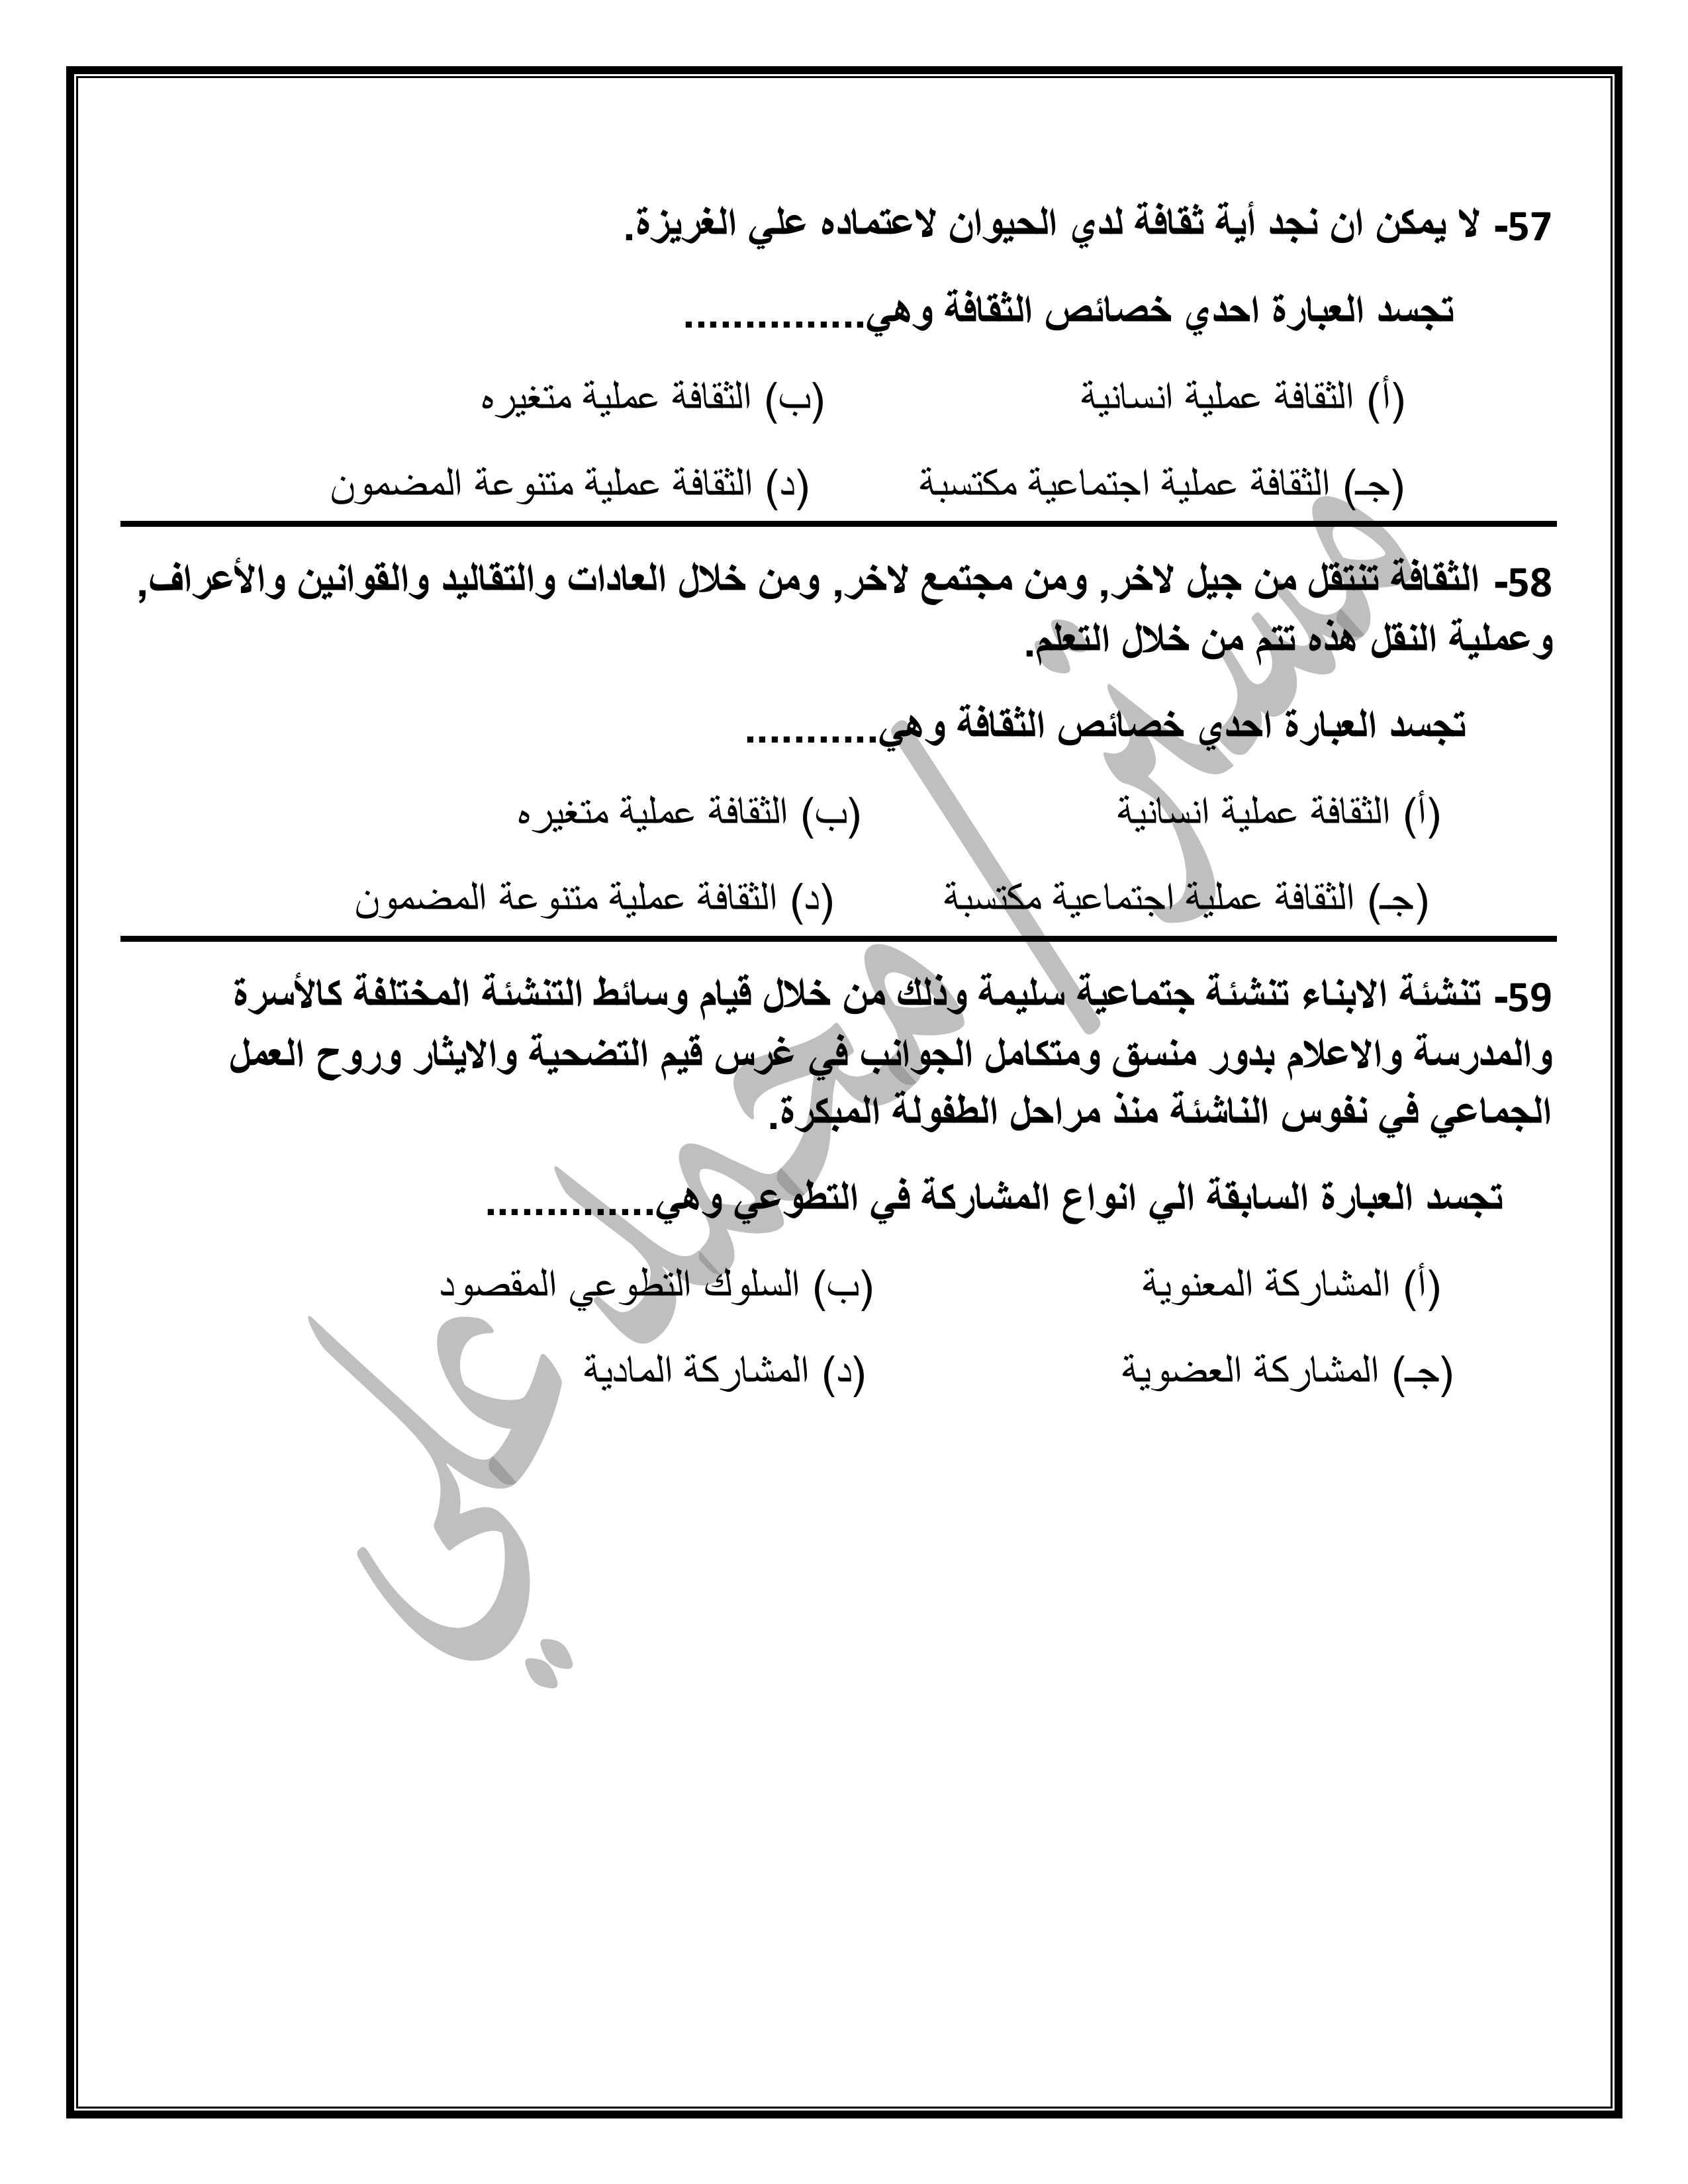 57- لا يمكن ان نجد أية ثقافة لدي الحيوان لاعتماده علي الغريزة.
تجسد العبارة احدي خصائص الثقافة وهي...............
(أ) الثقافة عملية انسانية (ب) الثقافة عملية متغيره
(جـ) الثقافة عملية اجتماعية مكتسبة (د) الثقافة عملية متنوعة المضمون
58- الثقافة تنتقل من جيل لاخر, ومن مجتمع لاخر, ومن خلال العادات والتقاليد والقوانين والأعراف,
وعملية النقل هذه تتم من خلال التعلم.
تجسد العبارة احدي خصائص الثقافة وهي...........
(أ) الثقافة عملية انسانية (ب) الثقافة عملية متغيره
(جـ) الثقافة عملية اجتماعية مكتسبة (د) الثقافة عملية متنوعة المضمون
59- تنشئة الابناء تنشئة جتماعية سليمة وذلك من خلال قيام وسائط التنشئة المختلفة كالأسرة
والمدرسة والاعلام بدور منسق ومتكامل الجوانب في غرس قيم التضحية والايثار وروح العمل
الجماعي في نفوس الناشئة منذ مراحل الطفولة المبكرة.
تجسد العبارة السابقة الي انواع المشاركة في التطوعي وهي..............
(أ) المشاركة المعنوية (ب) السلوك التطوعي المقصود
(جـ) المشاركة العضوية (د) المشاركة المادية
مستر/محمد علي